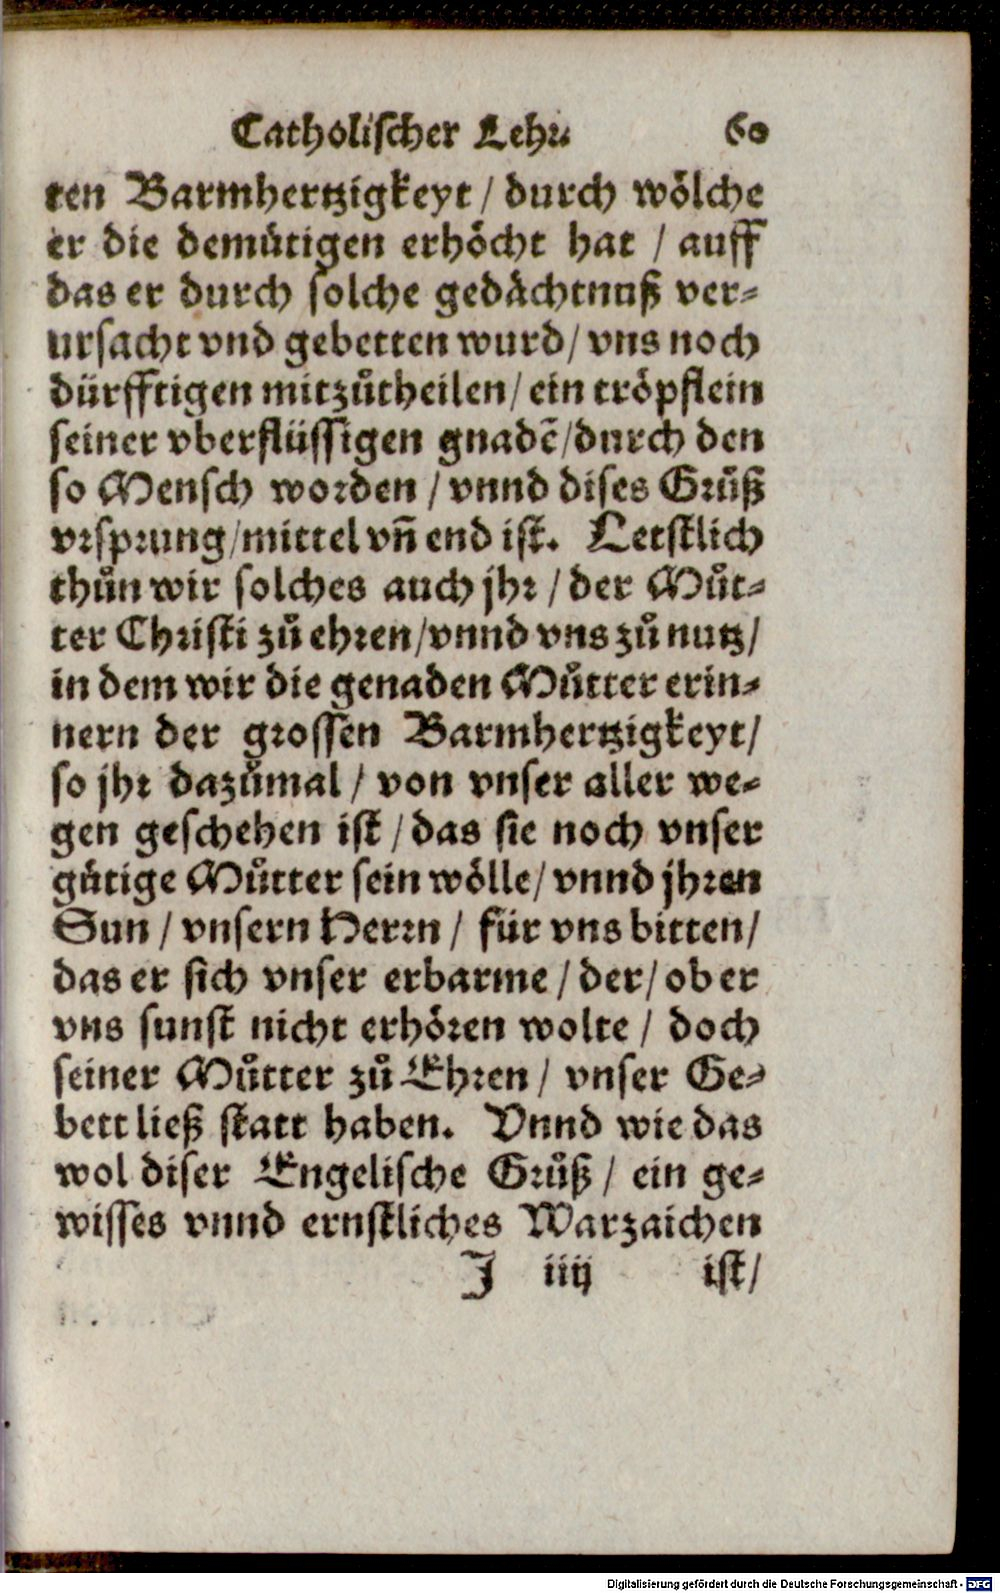 Catholischer Lehr. 60
ten Barmhertzigkeyt / durch wölche
er die demütigen erhöcht hat / auff
das er durch solche gedächtnuß ver-
ursacht vnd gebetten wurd / vns noch
dürfftigen mitzůtheilen / ein tröpflein
seiner vberflüssigen gnadē / durch den
so Mensch worden / vnnd dises Grůß
vrsprung / mittel vñ end ist. Letstlich
thůn wir solches auch jhr / der Můt-
ter Christi zů ehren / vnnd vns zů nutz /
in dem wir die genaden Můtter erin-
nern der grossen Barmhertzigkeyt /
so jhr dazůmal / von vnser aller we-
gen geschehen ist / das sie noch vnser
gütige Můtter sein wölle / vnnd jhren
Sun / vnsern Herrn / für vns bitten /
das er sich vnser erbarme / der / ob er
vns sunst nicht erhören wolte / doch
seiner Můtter zů Ehren / vnser Ge-
bett ließ statt haben. Vnnd wie das
wol diser Engelische Grůß / ein ge-
wisses vnnd ernstliches Warzaichen
J iiij ist /
Digitalisierung gefördert durch die Deutsche Forschungsgemeinschaft - DFG